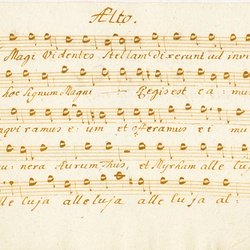 Alto.
Magi Videntes Stellam Dixerunt ad invi
hoc Signum Magni Regis est ea: mu
quiramus e: um et offeramus ei mu
nera Aurum Thus, et Myrham alle lu
alle luja alle luja alle luja al: